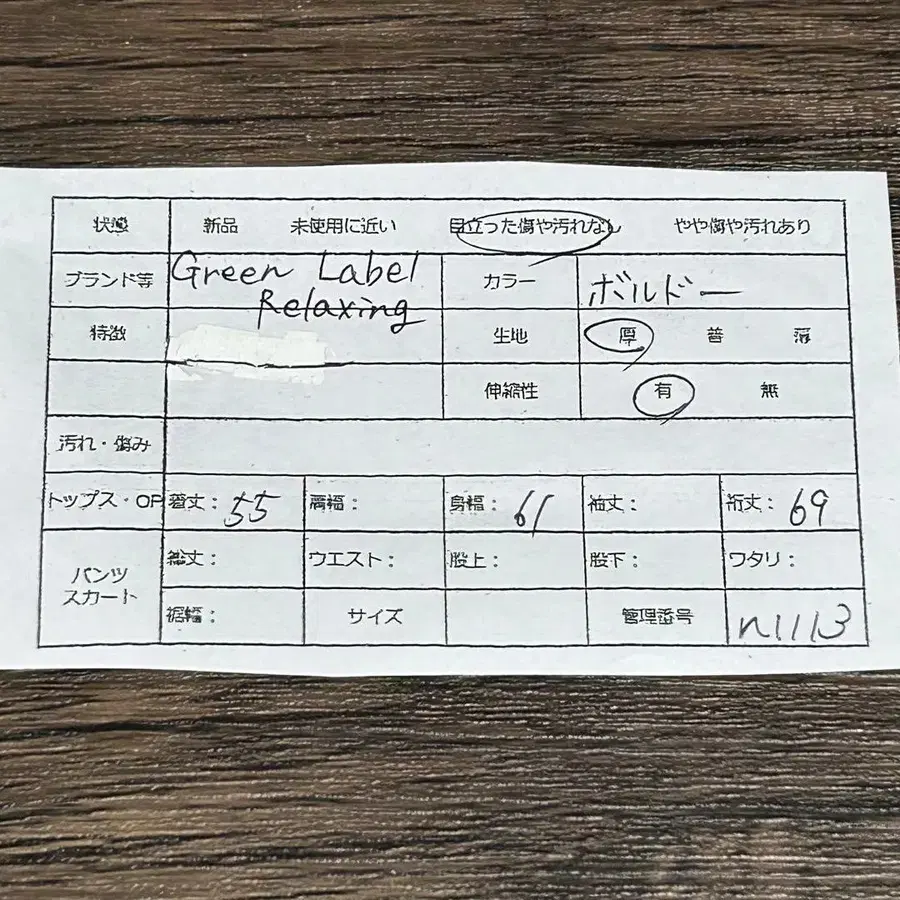 状態 新品 未使用に近い 目立った傷や汚れなし やや傷や汚れあり
ブランド等 Green Label Relaxing カラー ボルドー
特徴 生地 厚 普 薄
伸縮性 有 無
汚れ・傷み
トップス・OP 着丈： 55 肩幅： 身幅： 61 袖丈： 裄丈： 69
パンツ スカート 総丈： ウエスト： 股上： 股下： ワタリ：
裾幅： サイズ 管理番号 n1113